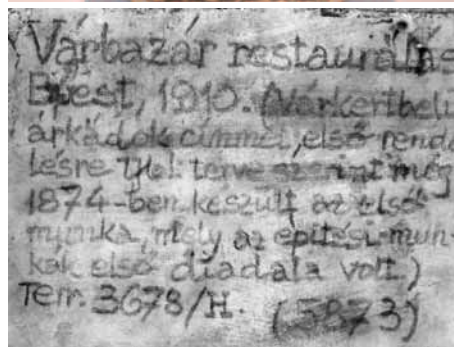 Várbazár restaurálás
Bpest, 1910. (Várkertbeli
árkádok címmel, első rende
lésre Ybl terve szerint még
1874-ben készült az első
munka, mely az építési mun-
kák első diadala volt.)
Tem. 3678/H. (5873)